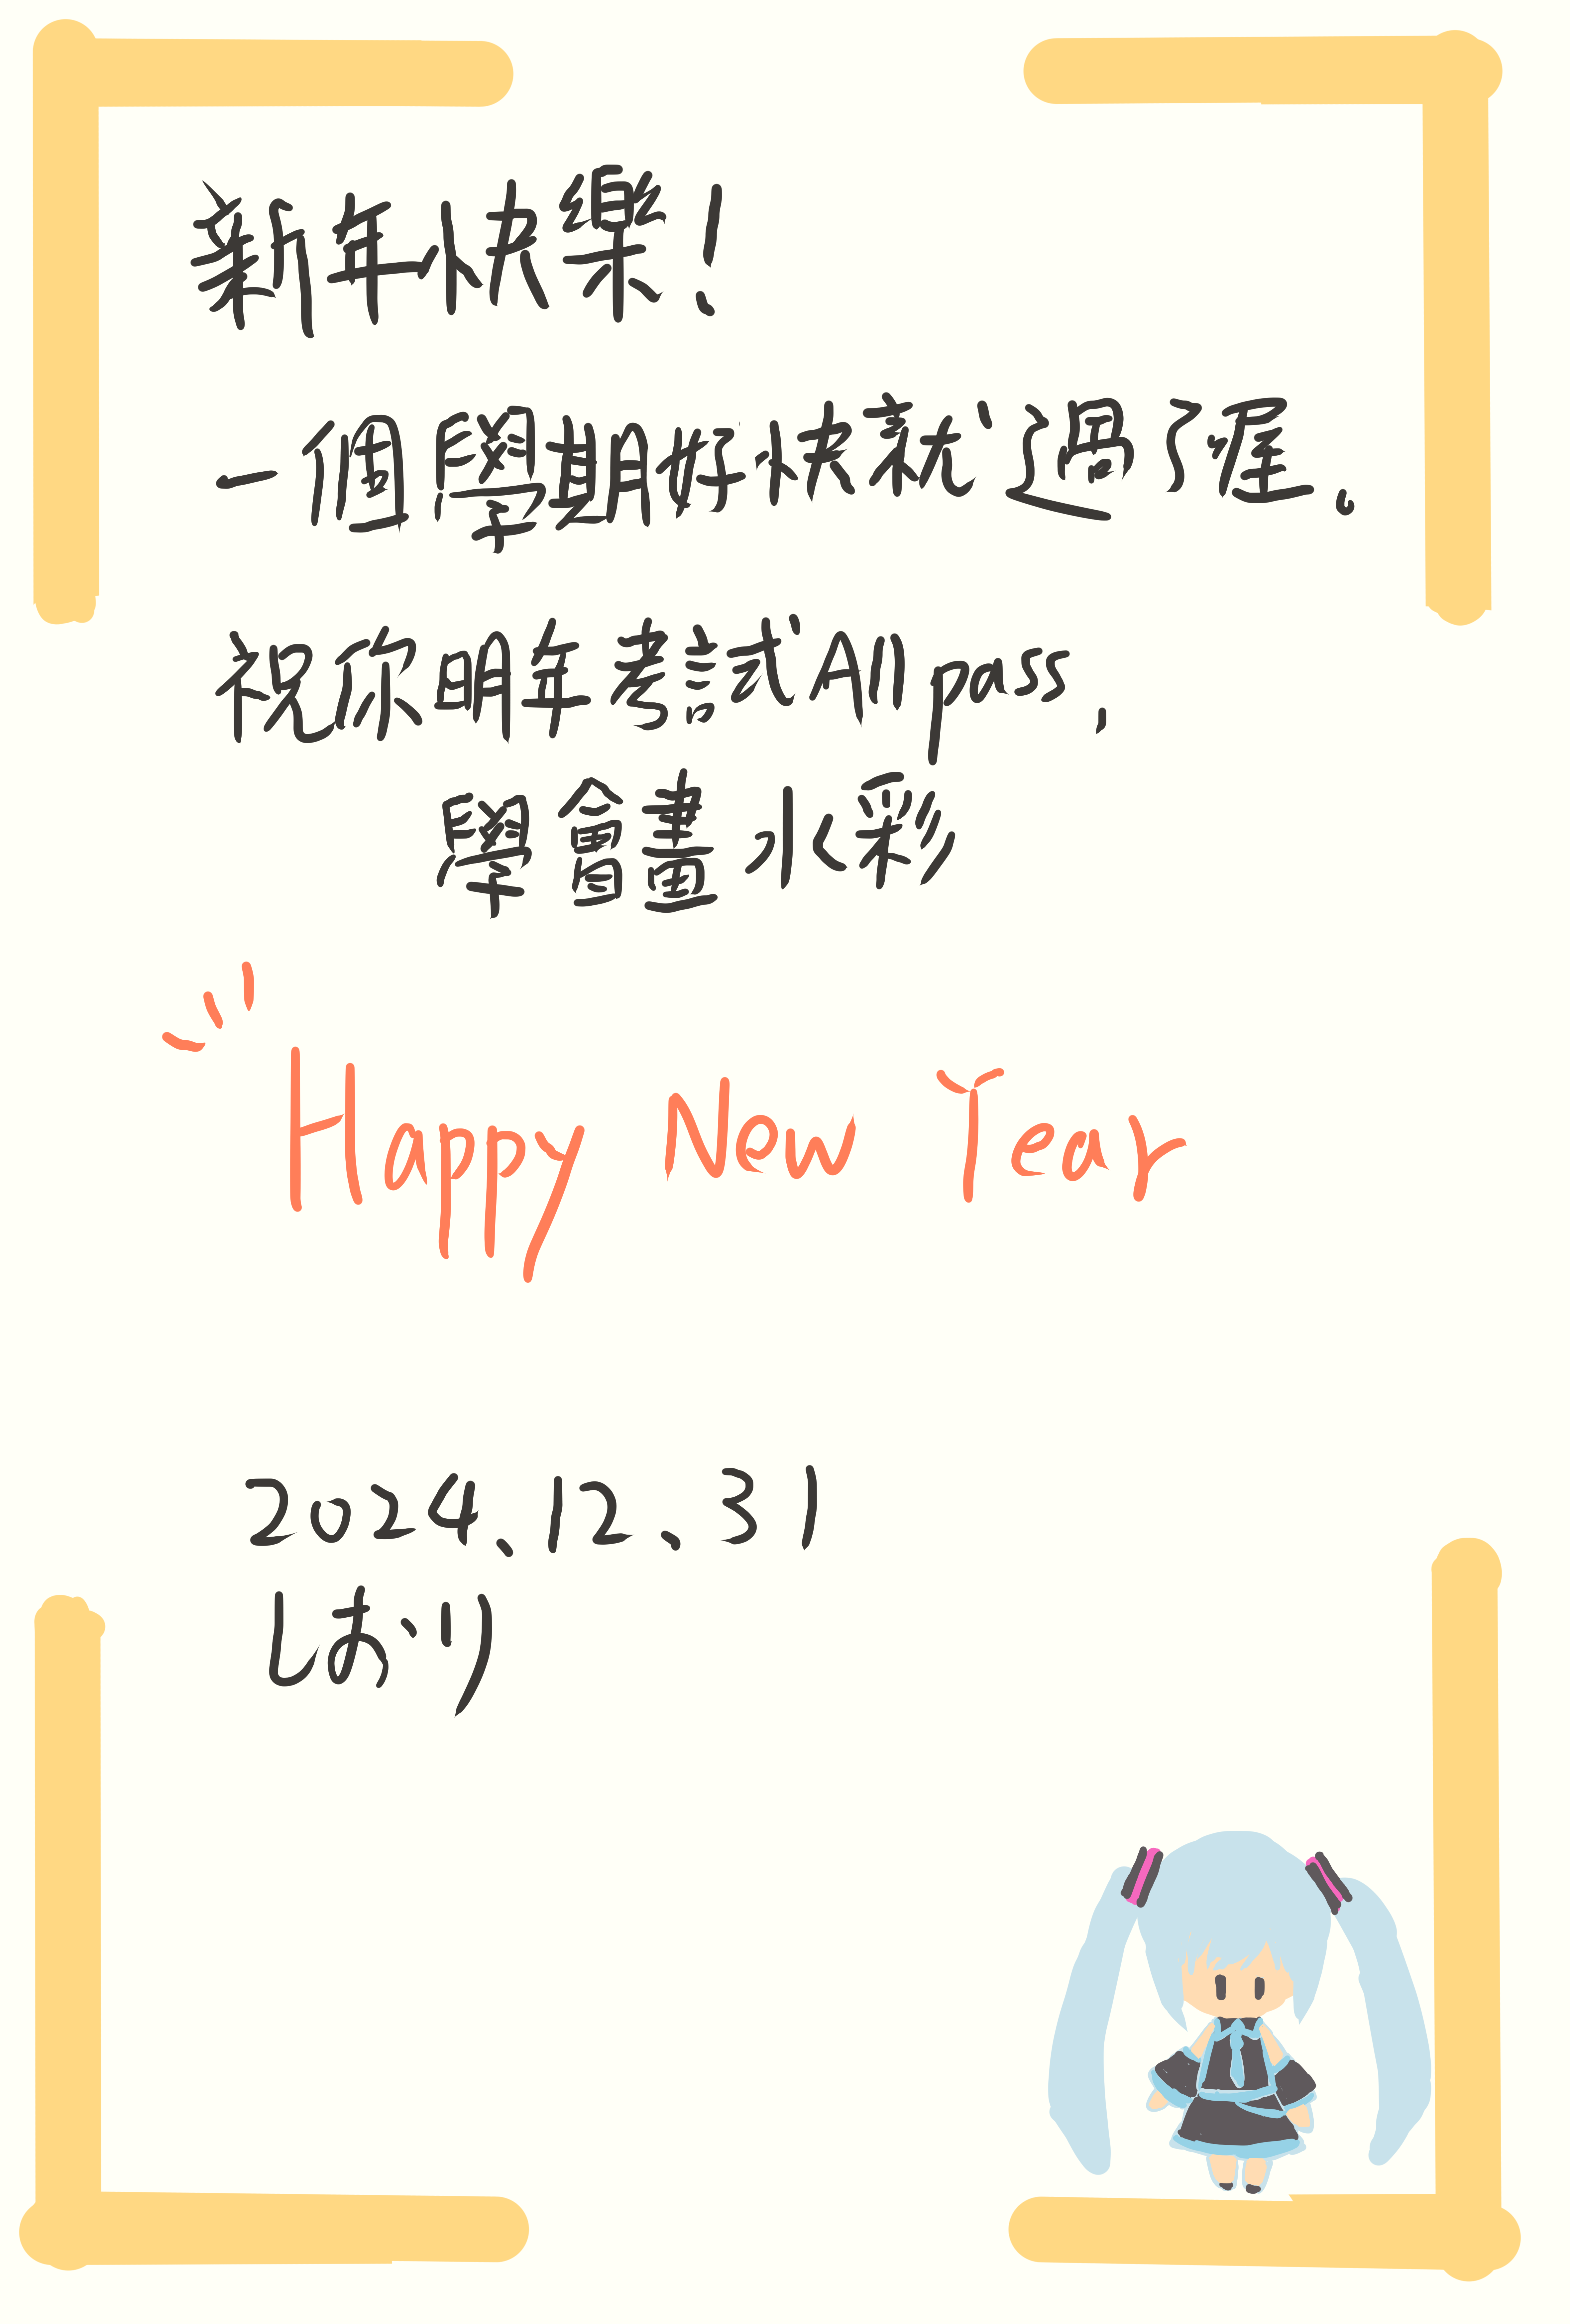 新年快樂!
一個學期好快就過ㄋ喔。
祝你明年考試All pass,
學會畫水彩
Happy New Year
2024.12.31
しおり